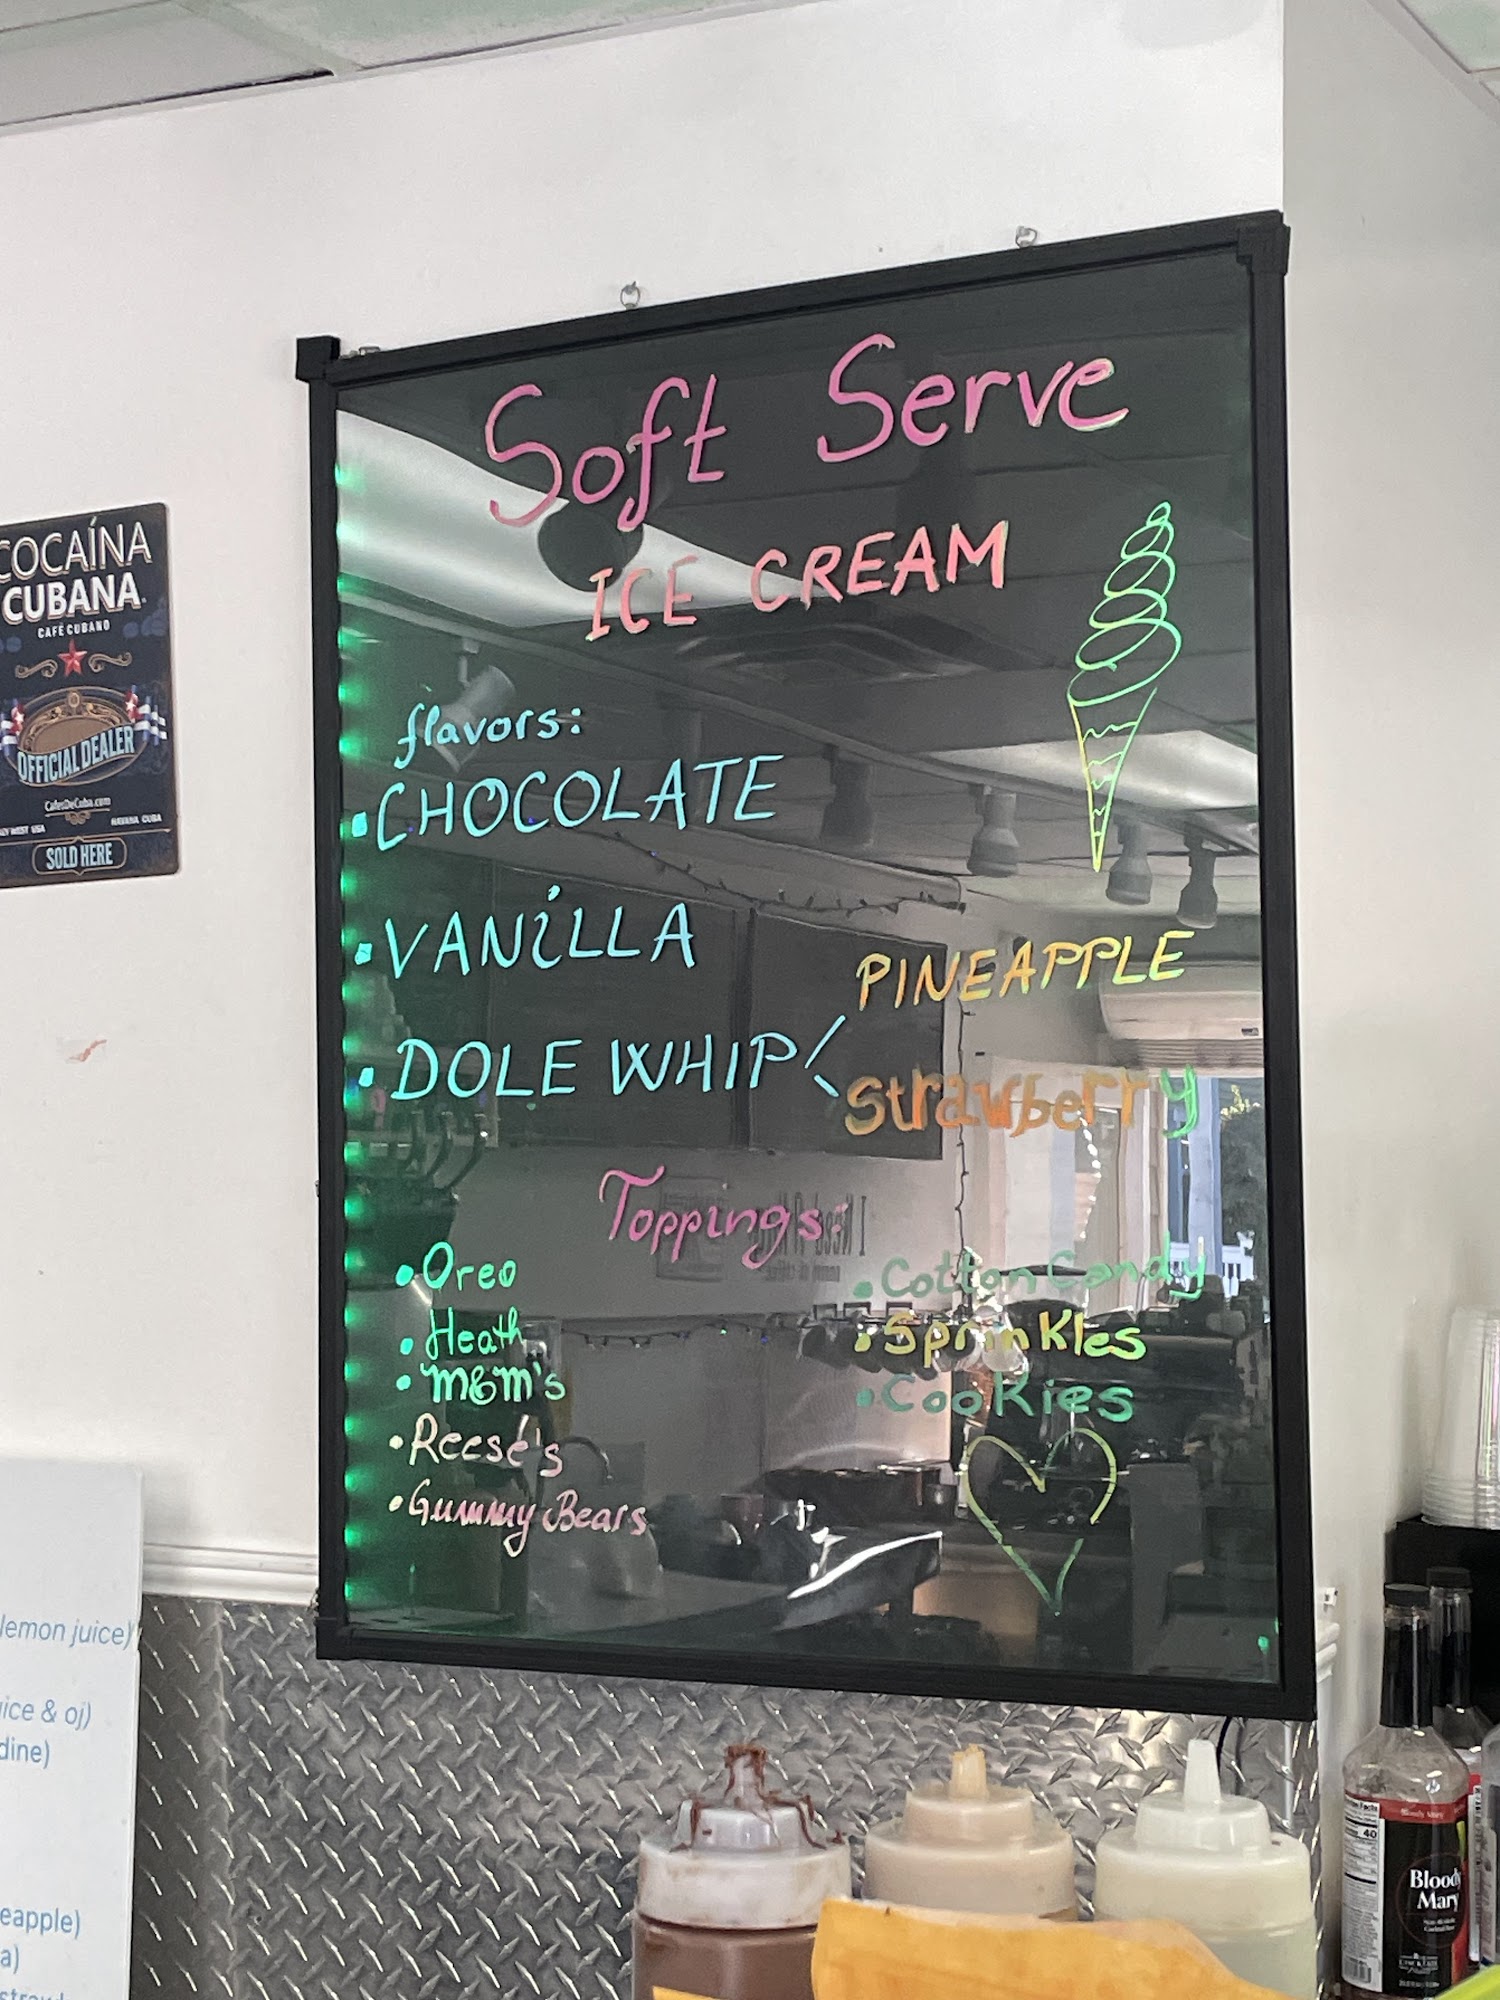 Soft Serve
ICE CREAM
flavors:
• CHOCOLATE
• VANiLLA
• DOLE WHIP <
PINEAPPLE
Strawberry
Toppings:
• Oreo
• Heath
• M&M's
• Reese's
• Gummy Bears
• Cotton Candy
• Sprinkles
• Cookies
COCAÍNA
CUBANA
CAFÉ CUBANO
OFFICIAL DEALER
CafesDeCuba.com
WEST USA
HAVANA CUBA
SOLD HERE
lemon juice)
& oj)
Bloody Mary
40
Bloody
Mary